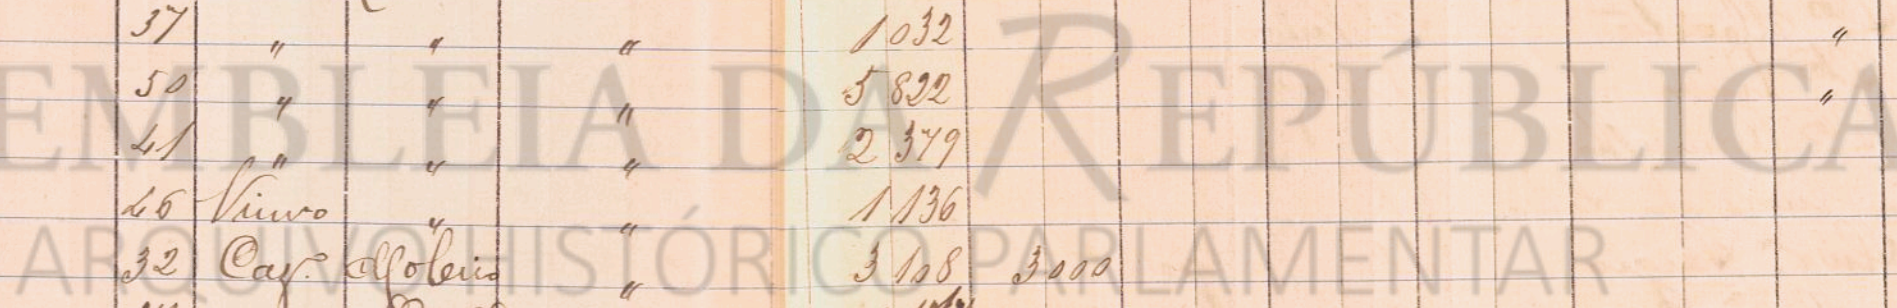 37 " " " 1032 "
50 " " " 5822 "
41 " " " 2379
46 Viuvo " " 1136
32 Caz.º Moleiro " 3108 3000
EMBLEIA DA REPÚBLICA
ARQUIVO HISTÓRICO PARLAMENTAR